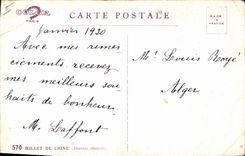 CARTE POSTALE
PARIS
Janvier 1920
Avec mes remer
ciements, recevez
mes meilleurs sou
haits de bonheur.
M. Laffont
Mr Louis Royé
Alger
570 BILLET DE CHINE